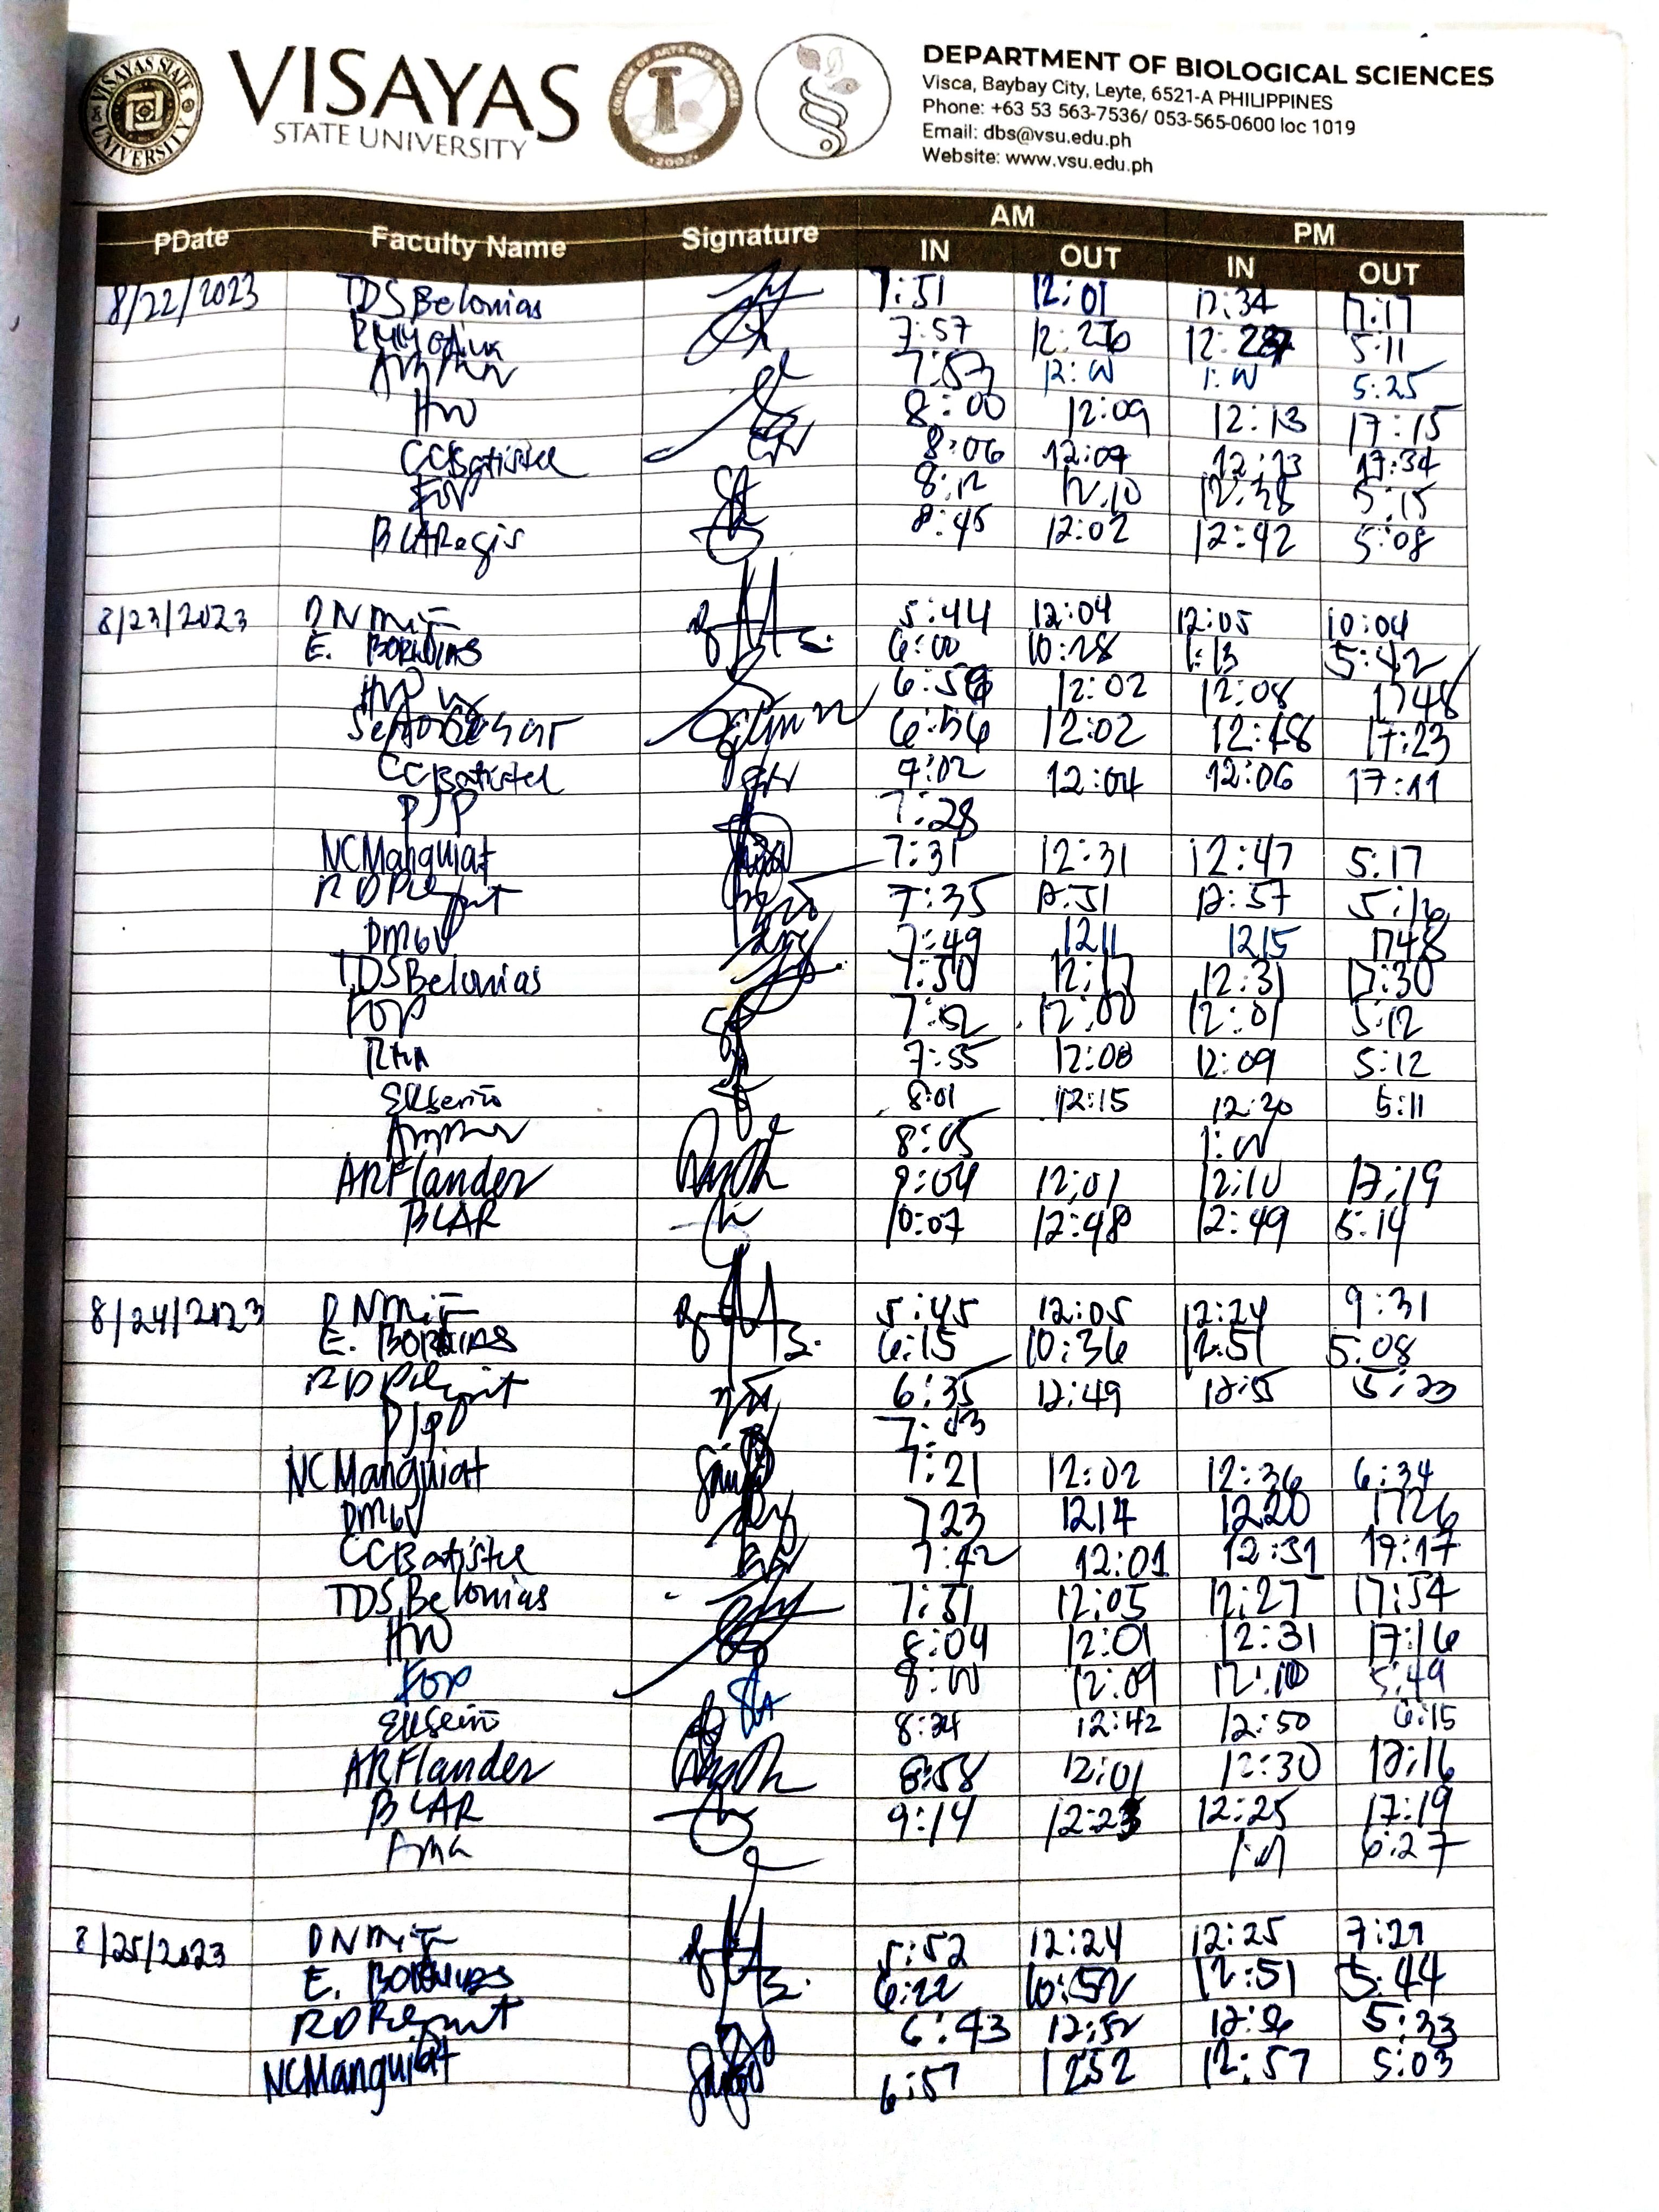 VISAYAS
STATE UNIVERSITY
VISAYAS STATE UNIVERSITY
COLLEGE OF ARTS AND SCIENCES
2002
DEPARTMENT OF BIOLOGICAL SCIENCES
Visca, Baybay City, Leyte, 6521-A PHILIPPINES
Phone: +63 53 563-7536/ 053-565-0600 loc 1019
Email: dbs@vsu.edu.ph
Website: www.vsu.edu.ph
PDate Faculty Name Signature AM PM
IN OUT IN OUT
8/22/2023 TDSBelonias 7:51 12:01 12:34 17:17
7:57 12:28 5:11
7:53 12:00 1:00 5:25
8:00 12:09 12:13 17:15
CCBatistel 8:06 12:09 12:13 17:34
FOP 8:12 12:10 12:38 5:15
BLARegis 8:45 12:02 12:42 5:08
8/23/2023 5:44 12:04 12:05 10:04
E. 6:00 10:28 1:13 5:42
12:02 12:08 1748
6:56 12:02 12:48 17:23
CCBatistel 7:02 12:04 12:06 17:11
PJP 7:28
NCManguiat 7:31 12:31 12:47 5:17
7:35 12:51 12:57 5:16
DMGV 7:49 1211 1215 1748
TDSBelonias 7:50 12:17 12:31 17:30
FOP 7:52 12:00 12:01 5:12
7:55 12:08 12:09 5:12
8:01 12:15 12:20 5:11
8:05 1:00
ARFlander 9:04 12:01 12:10 17:19
BLAR 10:07 12:48 12:49 5:14
8/24/2023 5:45 12:05 12:24 9:31
E. 6:15 10:36 12:51 5:08
6:35 12:49 12:55 5:23
PJP
NCManguiat 7:21 12:02 12:36 6:34
DMGV 723 1214 1220 1726
CCBatistel 7:42 12:01 12:31 17:17
TDSBelonias 7:51 12:05 12:27 17:54
8:04 12:01 12:31 17:16
FOP 8:00 12:09 12:10 5:49
8:24 12:42 12:50 6:15
ARFlander 8:58 12:01 12:30 17:16
BLAR 9:14 12:23 12:25 17:19
6:27
8/25/2023 5:52 12:24 12:25 7:29
E. 6:22 10:52 12:51 5:44
6:43 12:52 12:56 5:33
NCManguiat 6:57 1252 12:57 5:03